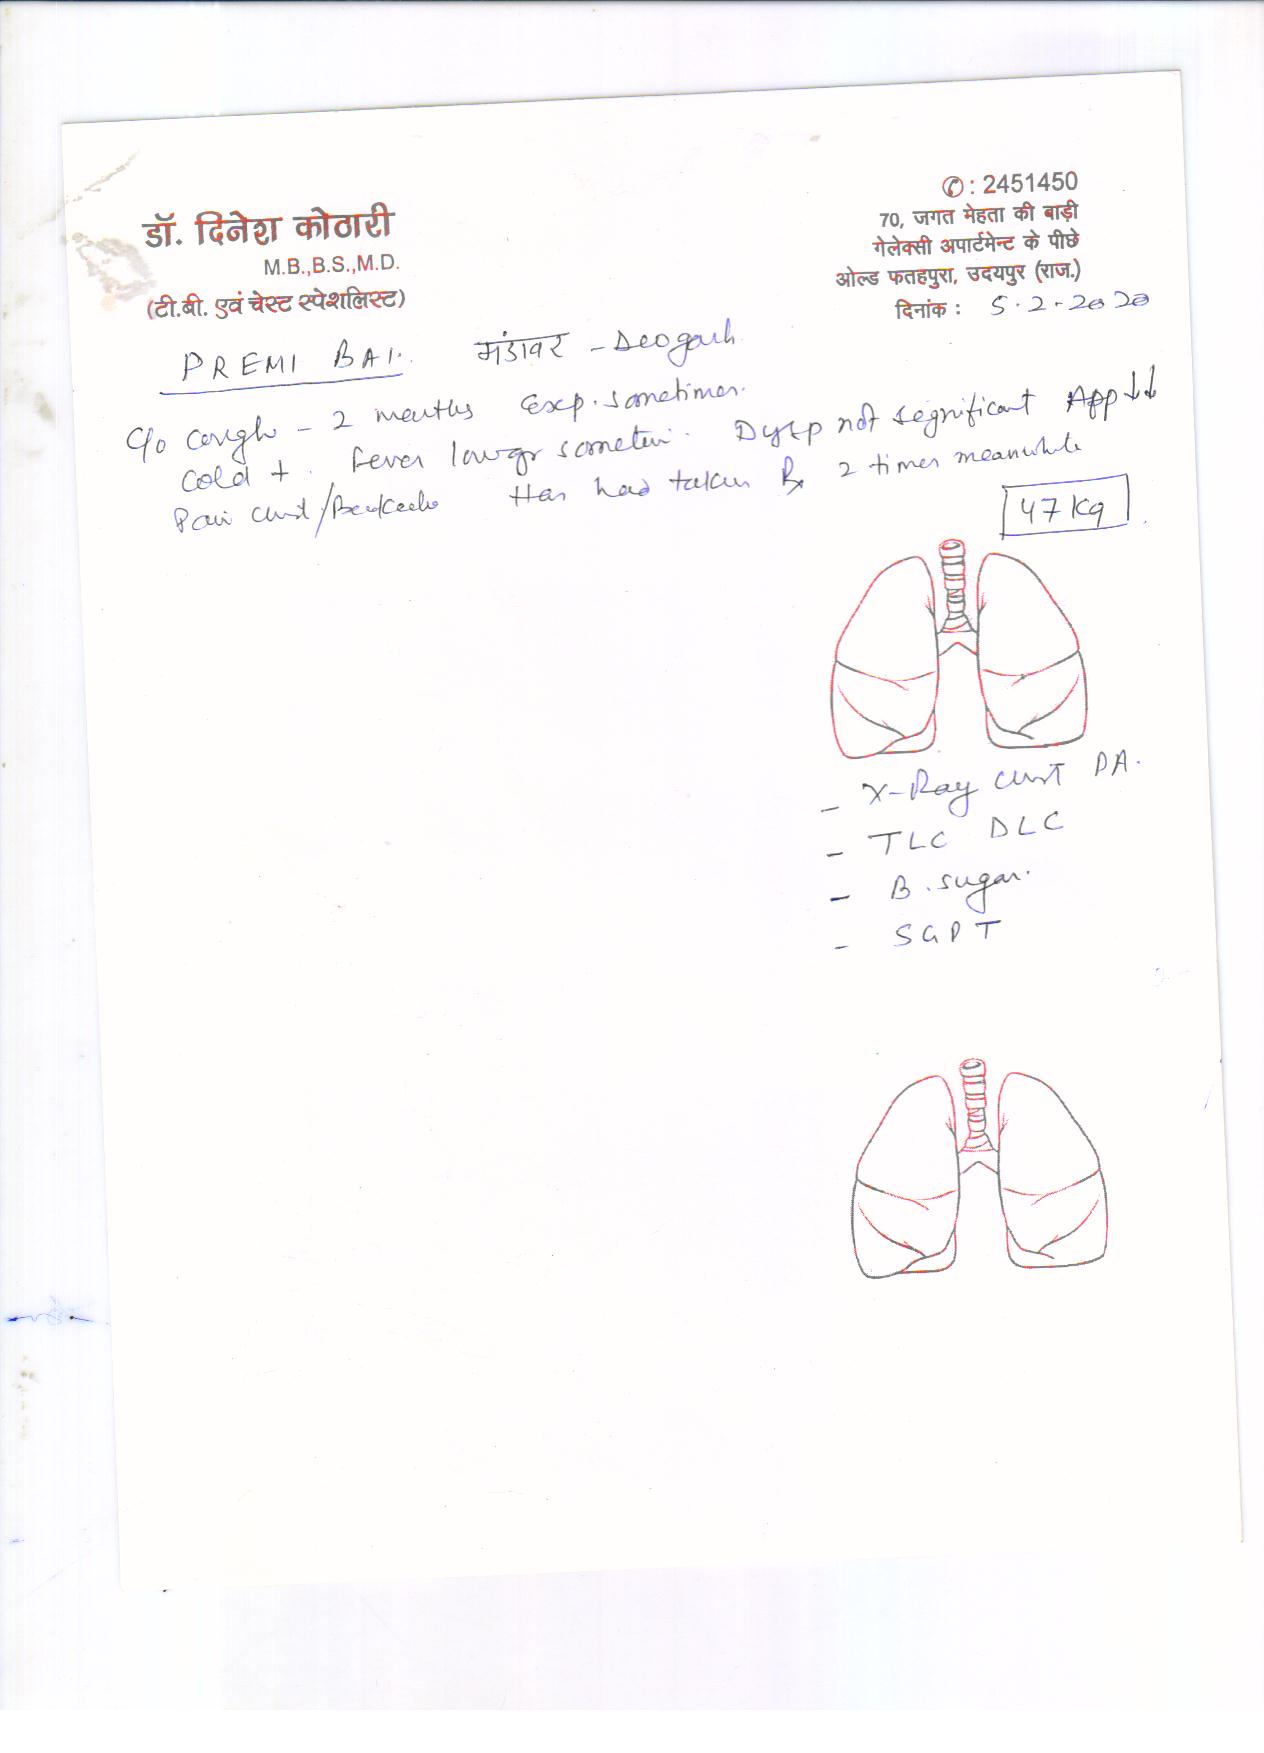 डॉ. दिनेश कोठारी
M.B.,B.S.,M.D.
(टी.बी. एवं चेस्ट स्पेशलिस्ट)
✆ : 2451450
70, जगत मेहता की बाड़ी
गेलेक्सी अपार्टमेन्ट के पीछे
ओल्ड फतहपुरा, उदयपुर (राज.)
दिनांक : 5.2.2020
PREMI BAI. मंडावर - Deogarh
C/o cough - 2 months Exp. sometimes.
cold +. Fever lowgr sometim. Dysp not segnificant App ↓↓
Pain chest/Backache Has had taken Rx 2 times meanwhile
47 Kg
- X-Ray chest PA.
- TLC DLC
- B. sugar.
- SGPT